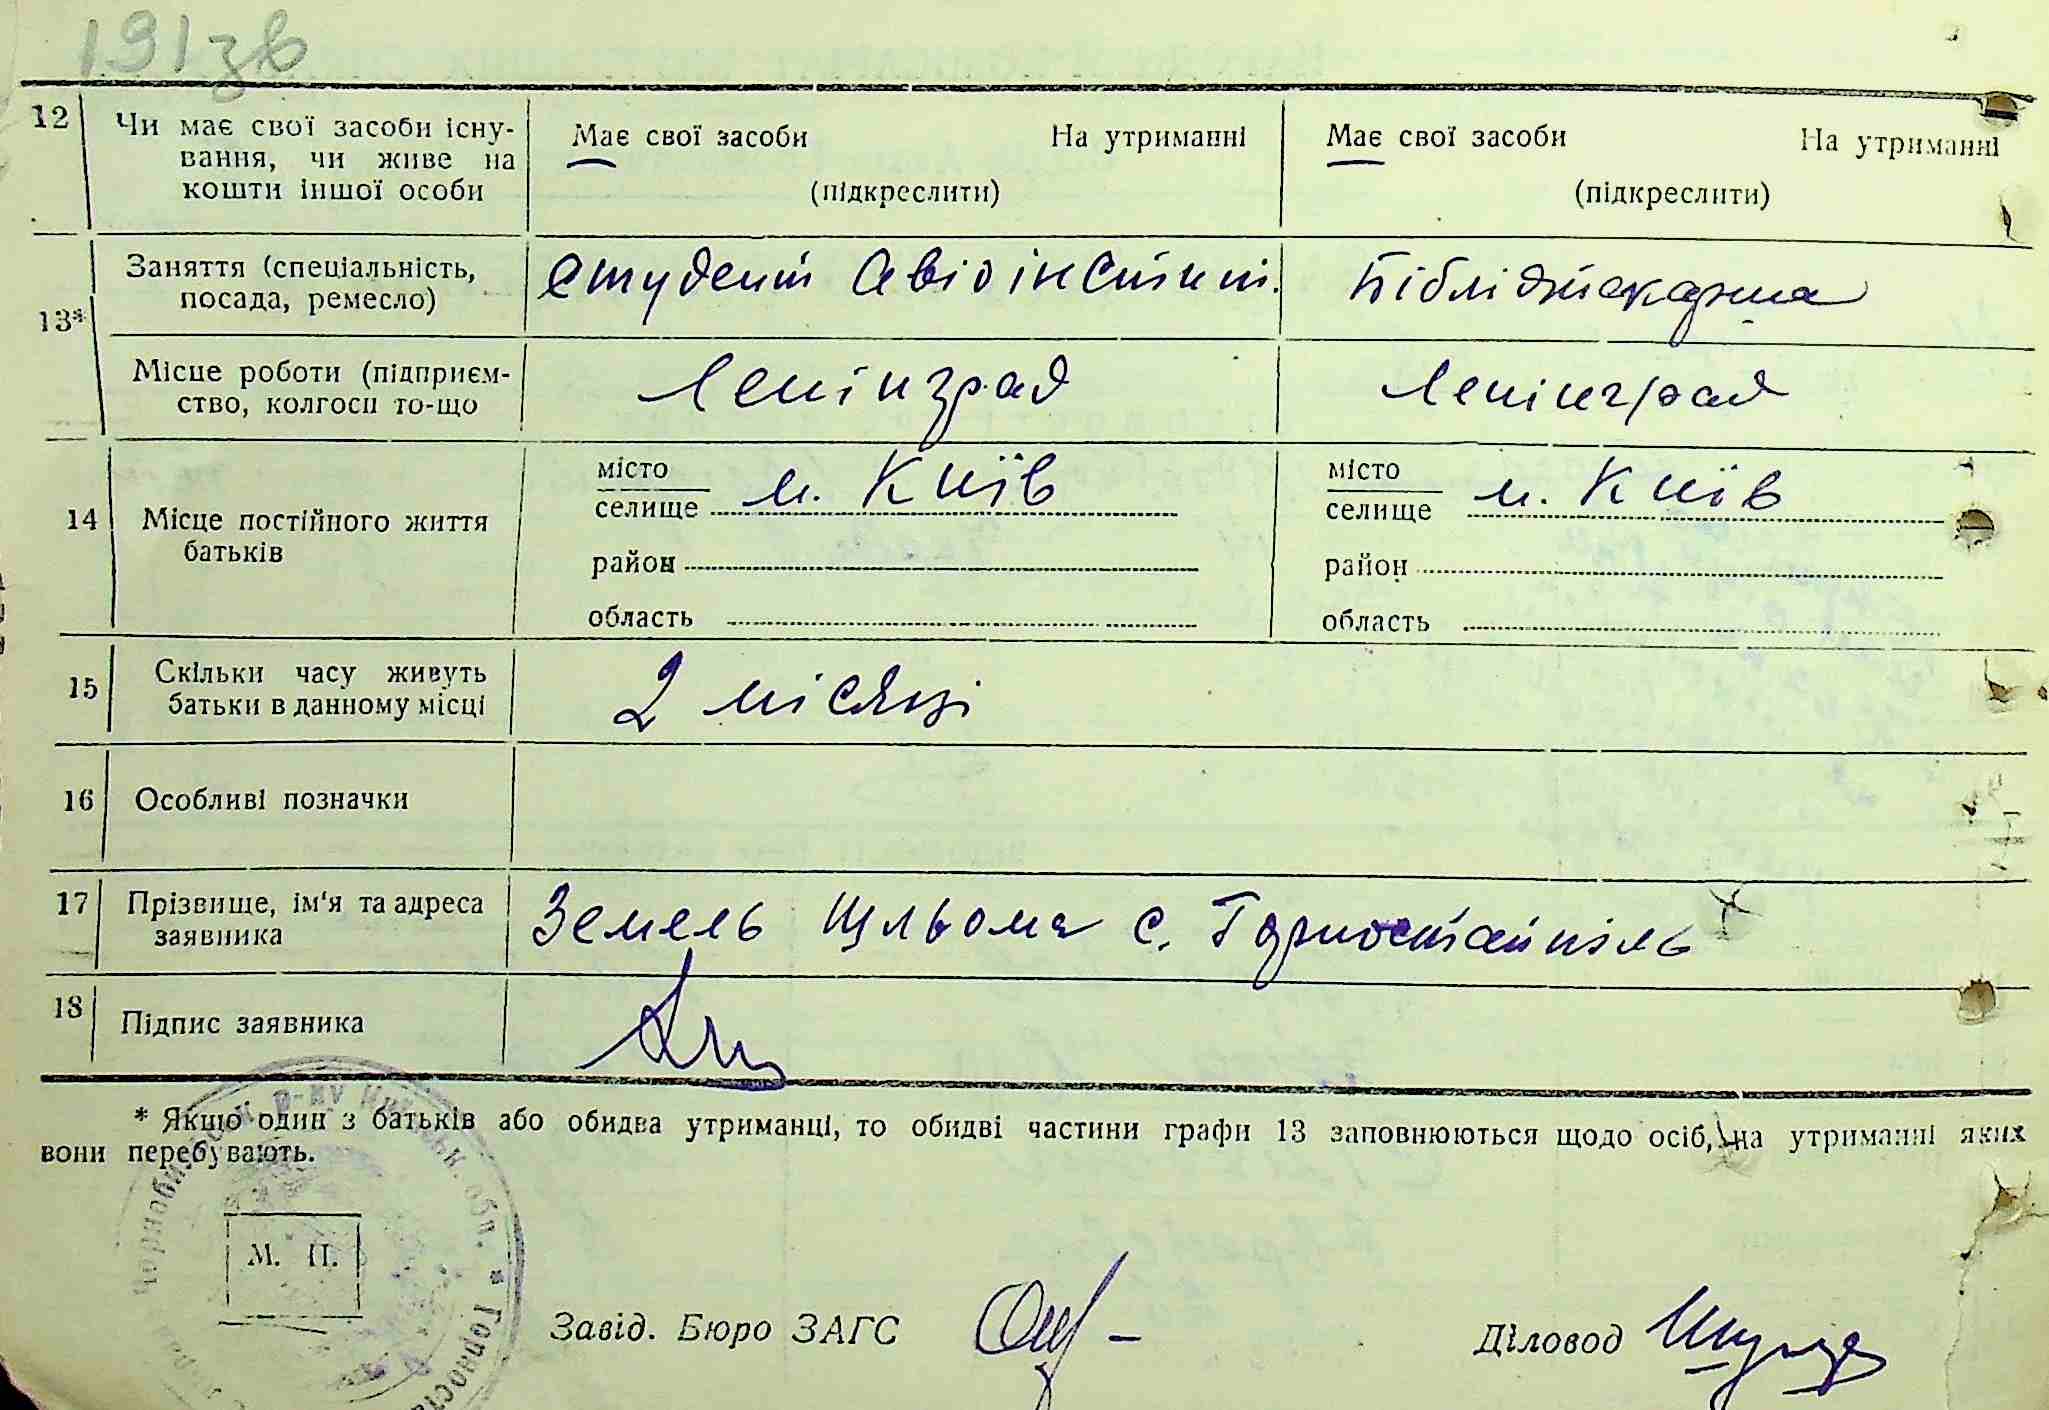 191зв
12 Чи має свої засоби існу- Має свої засоби На утриманні Має свої засоби На утриманні
вання, чи живе на
кошти іншої особи (підкреслити) (підкреслити)
13* Заняття (спеціальність, студент Авіоінстит. Бібліотекарша
посада, ремесло)
Місце роботи (підприєм- Ленінград Ленінград
ство, колгосп то-що
14 Місце постійного життя місто м. Київ місто м. Київ
батьків селище селище
район район
область область
15 Скільки часу живуть 2 місяці
батьки в данному місці
16 Особливі позначки
17 Прізвище, ім'я та адреса Земель Щльома с. Горностайпіль
заявника
18 Підпис заявника
* Якщо один з батьків або обидва утриманці, то обидві частини графи 13 заповнюються щодо осіб, на утриманні яких
вони перебувають.
М. П.
Завід. Бюро ЗАГС Діловод